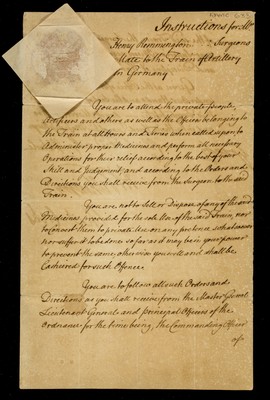 Instructions for Mr
Henry Remmington Surgeons
Mate to the Train of Artillery
in Germany
You are to attend the private
Artificers and others as well as the Officers belonging to
the Train at all Hours and Times when called upon to
Administer proper Medicines and perform all necessary
Operations for their relief according to the best of your
Skill and Judgement, and according to the Orders and
Directions you shall receive from the Surgeon to the said
Train.
You are not to Sell or Dispose of any of the said
Medicines provided for the use of the said Train, nor
to convert them to private Use on any pretence whatsoever
nor suffer it to be done so far as it may be in your power
to prevent the same, otherwise you will and shall be
Cashiered for such Offence.
You are to follow all such Orders and
Directions as you shall receive from the Master General
Lieutenant General and principal Officers of the
Ordnance for the time being, the Commanding Officer
of